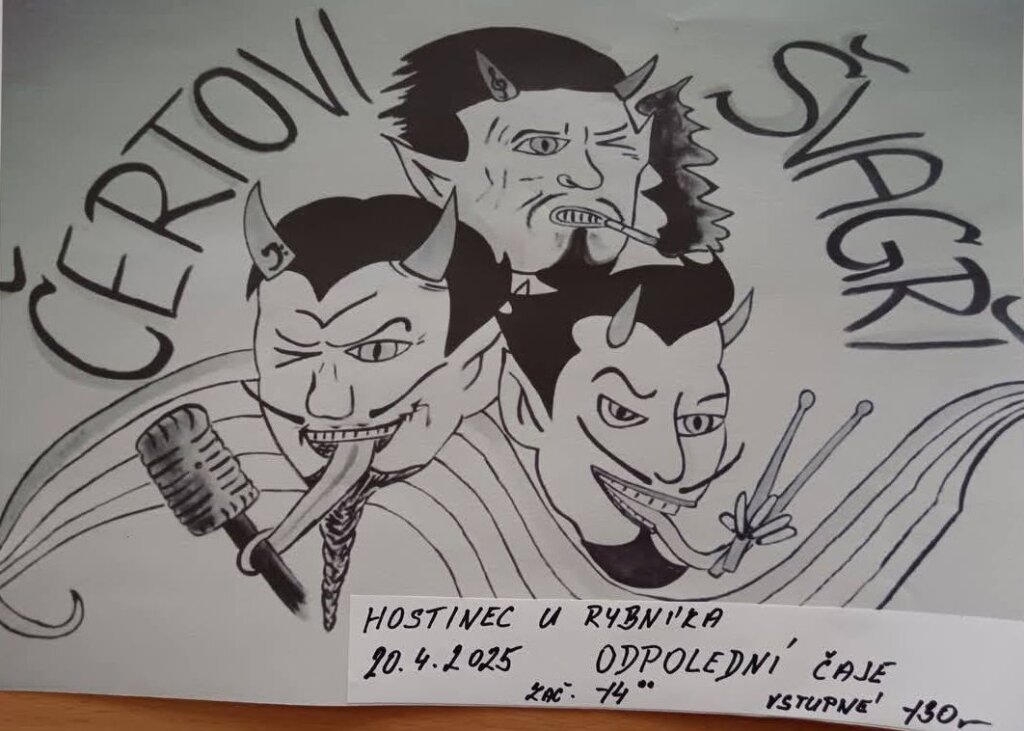 ČERTOVI ŠVAGŘI
HOSTINEC U RYBNÍKA
20.4.2025 ODPOLEDNÍ ČAJE
ZAČ. 14°° VSTUPNÉ 130,-